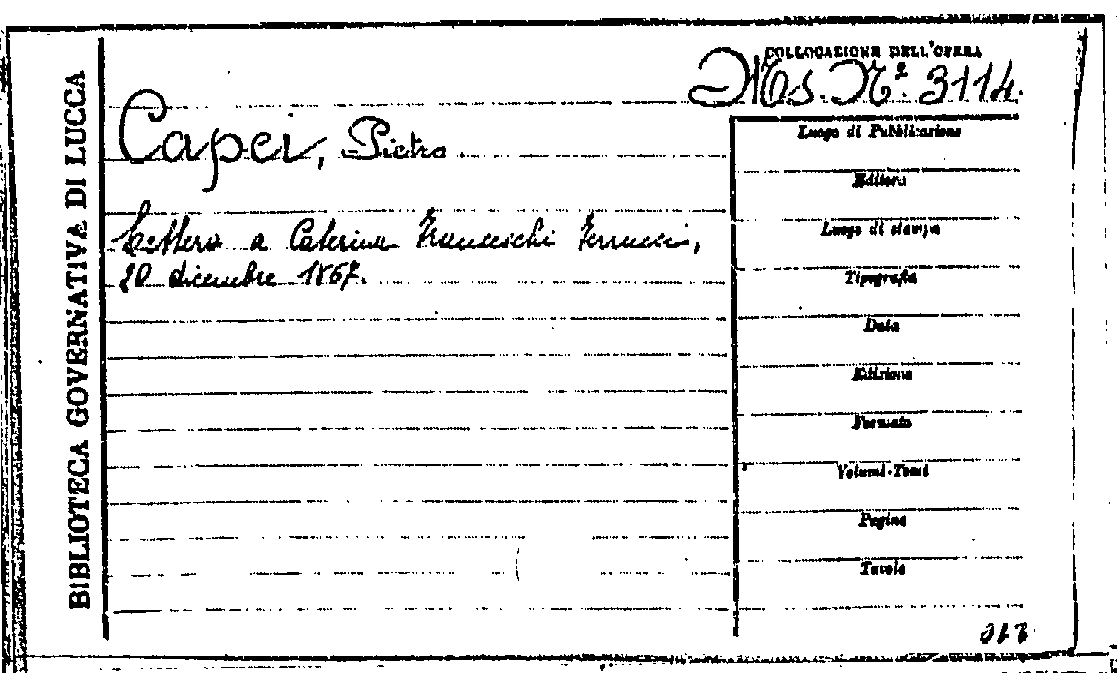 BIBLIOTECA GOVERNATIVA DI LUCCA
COLLOCAZIONE DELL'OPERA
Ms. Nº. 3114.
Capei, Pietro.
Lettera a Caterina Franceschi Ferrucci,
20 dicembre 1867.
Luogo di Pubblicazione
Editore
Luogo di stampa
Tipografia
Data
Edizione
Formato
Volumi-Tomi
Pagine
Tavole